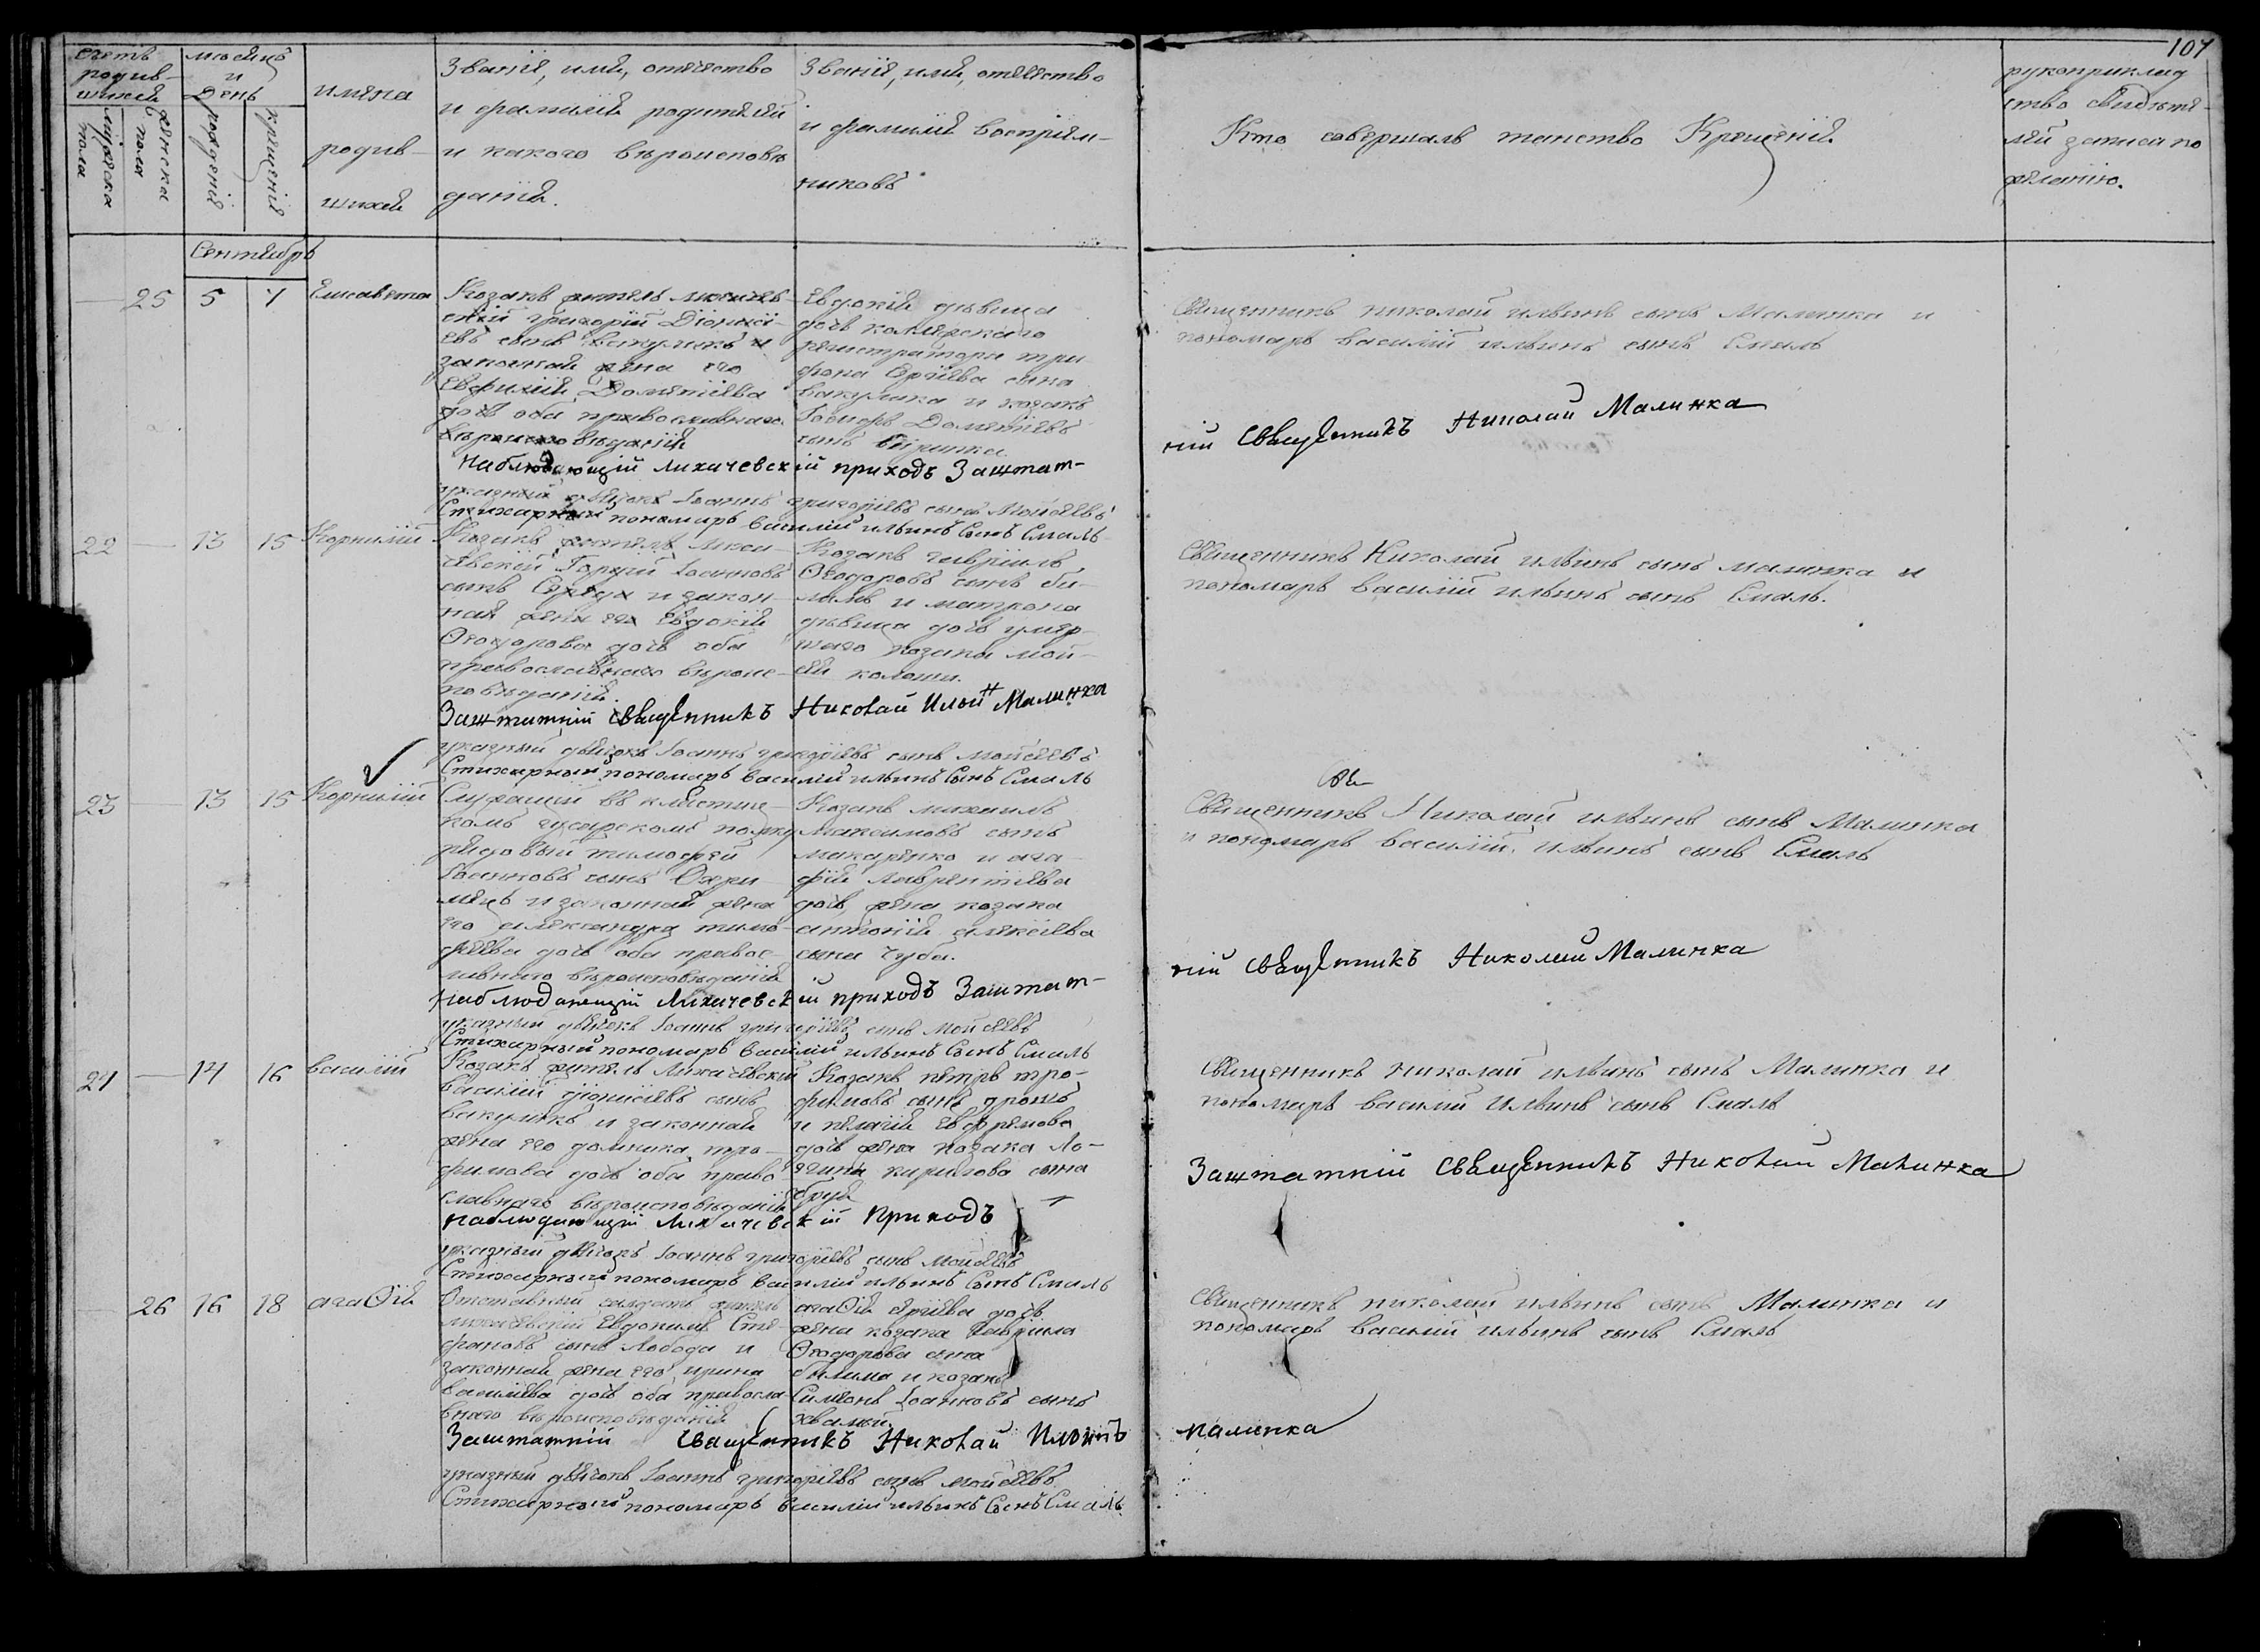 107
счетъ родив-шихся
мѣсяцъ и день
имена родив-шихся
Званіе, имя, отечество и фамилія родителей и какого вѣроисповѣданія.
Званіе, имя, отечество и фамилія воспріем-никовъ
Кто совершалъ таинство Крещенія
рукоприклад ство свидѣте-лей записа по желанію.
мужеска пола
женска пола
рожденія
крещенія
Сентябрь
25 5 7 Елисавета
Козакъ житель лихачев-
скій григорій Діонисі-
евъ сынъ вакуликъ и
законная жена его
Евфимія Дометіева
дочь оба православнаго
вѣроисповѣданія
Евдокія дѣвица
дочь коллежскаго
регистратора три
фона Сергіева сына
вакулика и козакъ
Дометіевъ
сынъ
Священникъ николай ильинъ сынъ Малинка и
пономарь василій ильинъ сынъ Смаль
Наблюдающій Лихачевскій приходъ Заштат-
ній священникъ Николай Малинка
указный дьячокъ Іоаннъ григоріевъ сынъ Мойсеевъ
Стихарный пономарь василій ильинъ Сынъ Смаль
22 — 13 15 Корнилій
Козакъ житель лиха-
чевскій Іоанновъ
сынъ Середа и закон-
ная жена его Евдокія
Ѳеодорова дочь оба
православнаго вѣроис-
повѣданія.
Козакъ гавріилъ
Ѳеодоровъ сынъ би-
лымъ и матрона
дѣвица дочь умер-
шаго козака мой-
сея
Священникъ Николай ильинъ сынъ малинка и
пономарь василій ильинъ сынъ Смаль.
Заштатній священникъ Николай Илоин Малинка
указный дьячокъ Іоаннъ григоріевъ сынъ мойсеевъ
Стихарный пономарь василій ильинъ Сынъ Смаль
23 — 13 15 Корнилій
Служащій въ
комъ гусарскомъ полку
рядовый тимофей
Іоанновъ сынъ Охри-
мецъ и законная жена
его александра тимо-
феева дочь оба правос-
лавнаго вѣроисповѣданія
Козакъ михаилъ
Максимовъ сынъ
макаренко и ага-
фія Лаврентіева
дочь, жена козака
антонія алексіева
сына чуба.
Свя
Священникъ Николай ильинъ сынъ Малинка
и пономарь василій, ильинъ сынъ Смаль
Наблюдающій Лихачевскій приходъ Заштат-
ній священникъ Николай Малинка
указный дьячокъ Іоаннъ григоріевъ сынъ Мойсеевъ
Стихарный пономарь василій ильинъ Сынъ Смаль
24 — 14 16 василій
Козакъ житель Лихачевскій
василій діонисіевъ сынъ
вакуликъ и законная
жена его домника тро-
фимова дочь оба право
славнаго вѣроисповѣданія
Козакъ петръ тро-
фимовъ сынъ
и пелагія Евфремова
дочь жена козака Ло-
гина кирилова сына
Священникъ николай ильинъ сынъ Малинка и
пономарь василій ильинъ сынъ Смаль
Наблюдающій Лихачевскій Приходъ
Заштатній священникъ Николай Малинка
указный дьячокъ Іоаннъ григоріевъ сынъ Мойсеевъ
Стихарный пономарь василій ильинъ Сынъ Смаль
26 16 18 агаѲія
Отставный салдатъ житель
лихачевскій Евдокимъ Сте-
фановъ сынъ Лобода и
законная жена его ирина
василіева дочь оба правосла
внаго вѣроисповѣданія
агаѲія дочь
жена козака Гавріила
Ѳеодорова сына
билима и козакъ
Симеонъ Іоанновъ сынъ
Священникъ николай ильинъ сынъ Малинка и
пономарь василій ильинъ сынъ Смаль
Заштатній священникъ Николай Илоинъ Малинка
указный дьячокъ Іоаннъ григоріевъ сынъ мойсеевъ
Стихарный пономарь василій ильинъ Сынъ Смаль